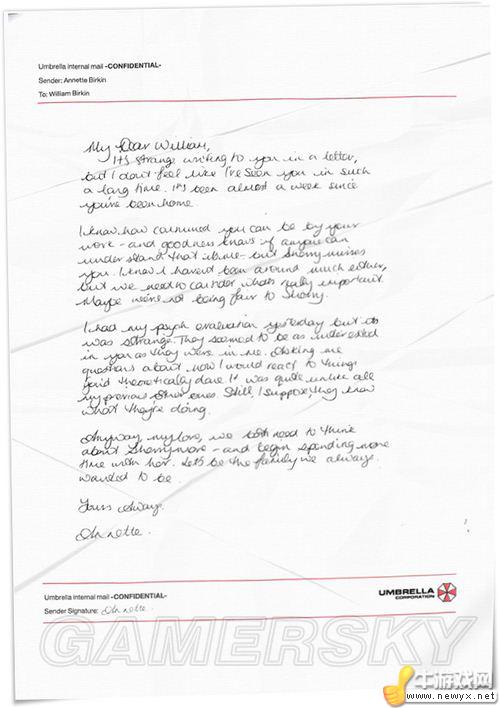 Umbrella internal mail -CONFIDENTIAL-
Sender: Annette Birkin
To: William Birkin
My Dear William,
It's strange writing to you in a letter,
but I don't feel like I've seen you in such
a long time. It's been almost a week since
you've been home.
I know how consumed you can be by your
work - and goodness knows if anyone can
understand that it's me - but Sherry misses
you. I know I haven't been around much either,
but we need to consider what's really important.
Maybe we're not being fair to Sherry.
I had my psych evaluation yesterday but it
was strange. They seemed to be as interested
in you as they were in me. Asking me
questions about how I would react to things
you'd theoretically done. It was quite unlike all
my previous other ones. Still, I suppose they know
what they're doing.
Anyway, my love, we both need to think
about Sherry more - and begin spending more
time with her. Let's be the family we always
wanted to be.
Yours Always.
Annette.
Umbrella internal mail -CONFIDENTIAL-
Sender Signature: Annette.
UMBRELLA
CORPORATION
GAMERSKY
牛游戏网
www.newyx.net